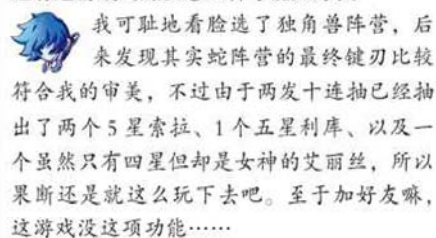 我可耻地看脸选了独角兽阵营，后
来发现其实蛇阵营的最终键刃比较
符合我的审美，不过由于两发十连抽已经抽
出了两个5星索拉、1个五星利库、以及一
个虽然只有四星但却是女神的艾丽丝，所以
果断还是就这么玩下去吧。至于加好友嘛，
这游戏没这项功能……